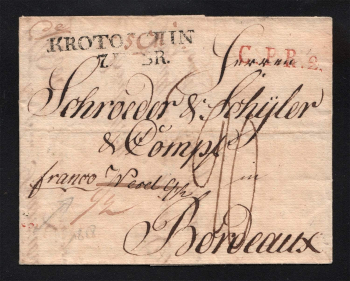 KROTOSCHIN
7 BR.
C.P.R.2.
Herren
Schroeder & Schÿler
& Comp
franco Wesel
in
Bordeaux